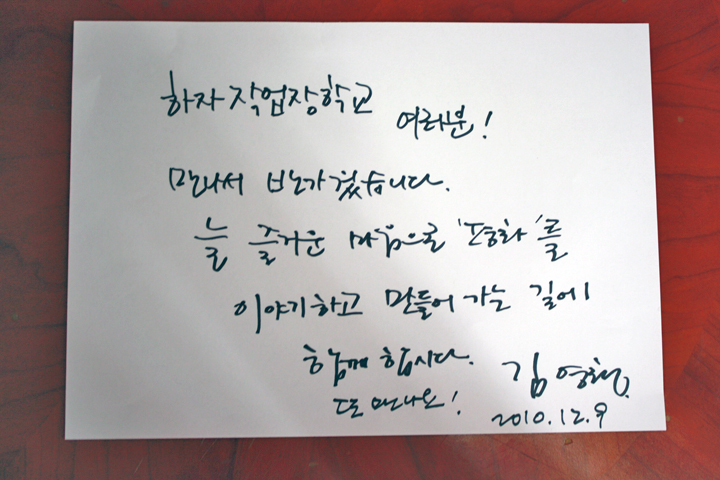 하자작업장학교 여러분!
만나서 반가웠습니다.
늘 즐거운 마음으로 '평화'를
이야기하고 만들어 가는 길에
함께 합시다.
또 만나요!
김영환
2010.12.9